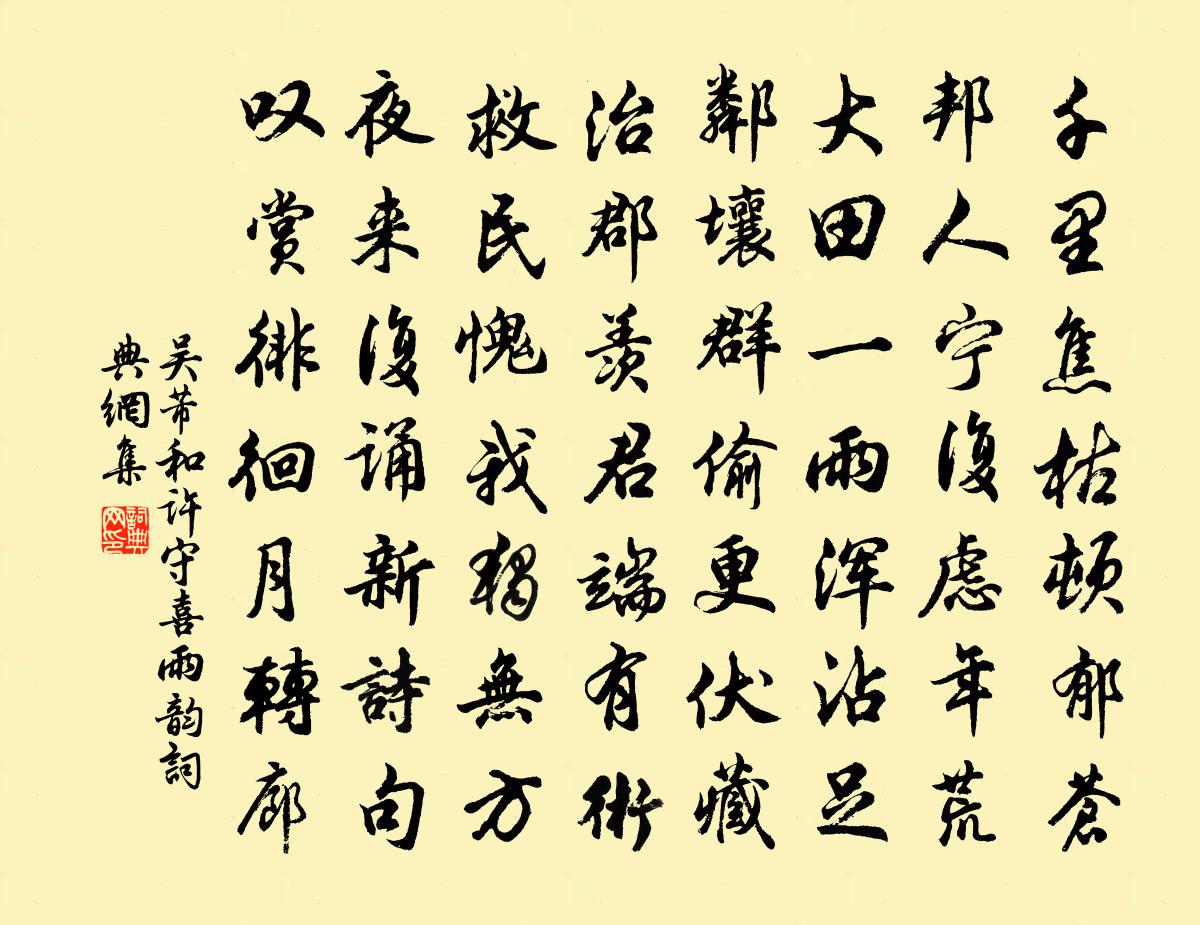 千里焦枯頓郁蒼
邦人宁復慮年荒
大田一雨浑沾足
鄰壤群偷更伏藏
治郡羨君端有術
救民愧我獨無方
夜来復诵新詩句
叹賞徘徊月轉廊
吴芾和许守喜雨韵詞
典網集
詞典网印